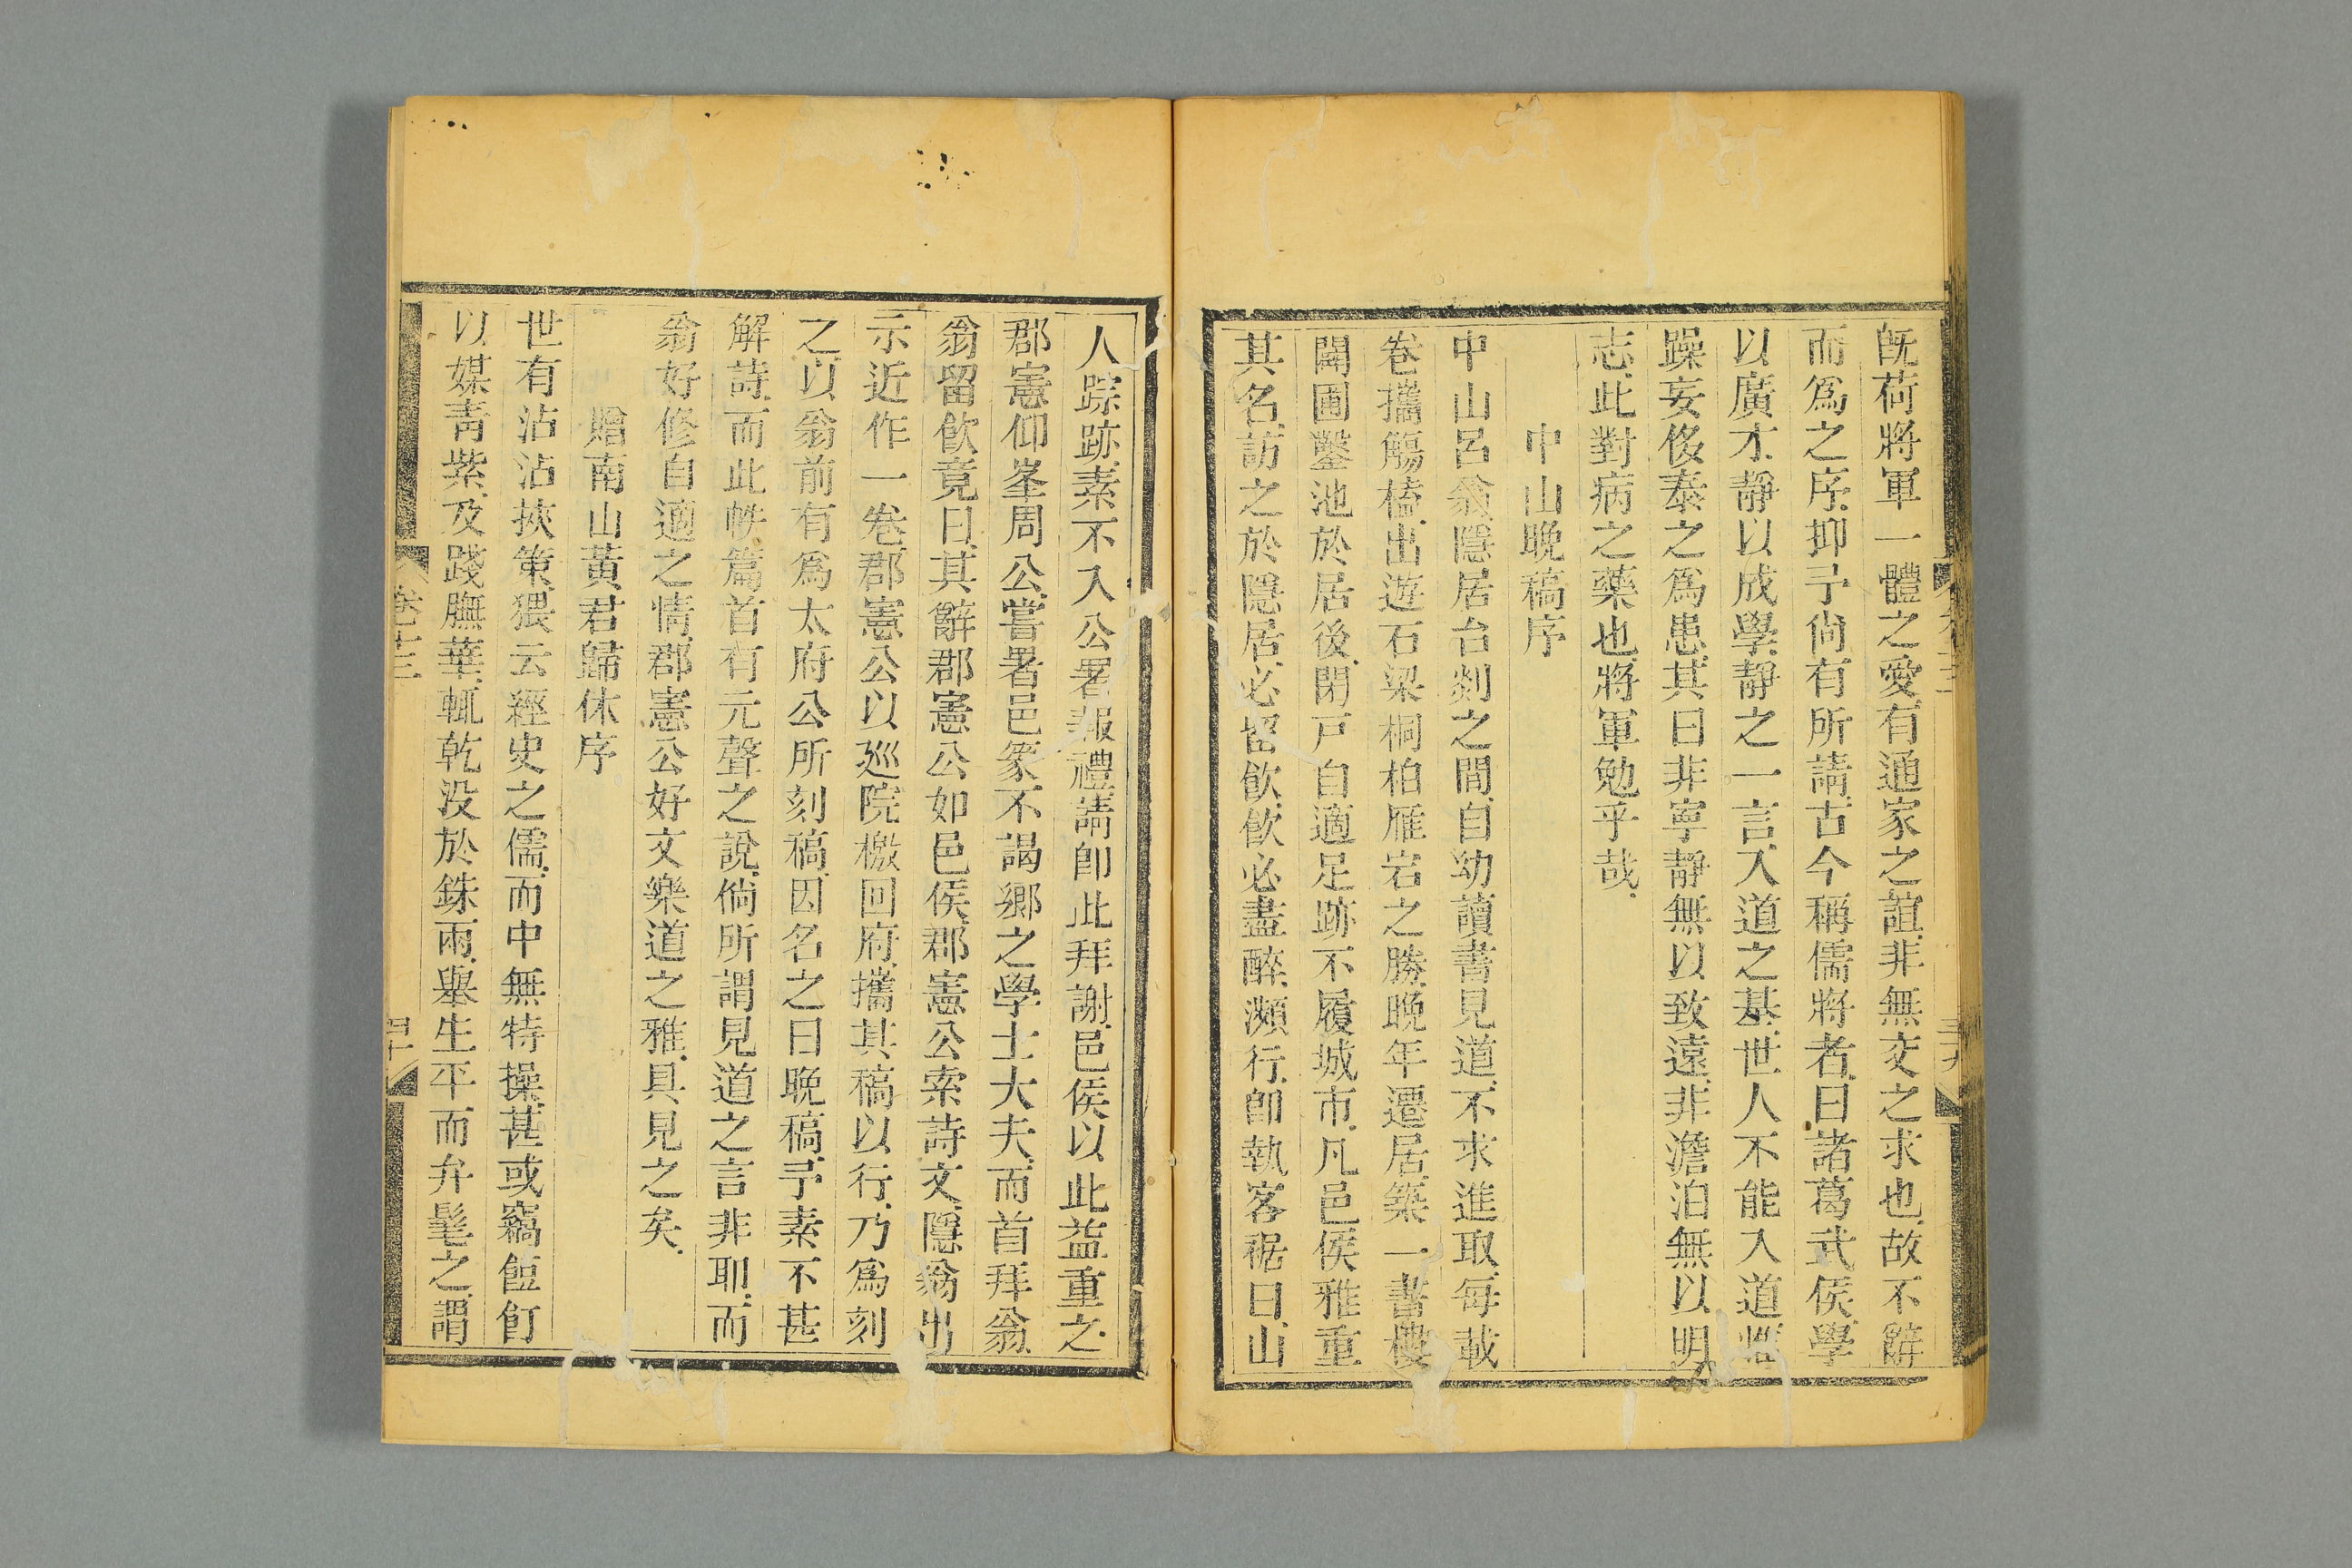 既荷將軍一體之愛有通家之誼非無交之求也故不辭
而爲之序抑予尙有所請古今稱儒將者曰諸葛武侯學
以廣才靜以成學靜之一言入道之基世人不能入道
躁妄侈泰之爲患其曰非寧靜無以致遠非澹泊無以明
志此對病之藥也將軍勉乎哉
中山晚稿序
中山呂翁隱居台剡之間自幼讀書見道不求進取每載
卷攜觴榼出遊石梁桐柏雁宕之勝晚年遷居築一書樓
闢圃鑿池於居後閉戸自適足跡不履城市凡邑侯雅重
其名訪之於隱居必留飮飮必盡醉瀕行卽執客裾曰山
人踪跡素不入公署報禮請卽此拜謝邑侯以此益重之
郡憲仰峯周公嘗署邑篆不謁鄕之學士大夫而首拜翁
翁留飮竟日其辭郡憲公如邑侯郡憲公索詩文隱翁出
示近作一卷郡憲公以廵院檄回府攜其稿以行乃爲刻
之以翁前有爲太府公所刻稿因名之曰晚稿予素不甚
解詩而此帙篇首有元聲之說倘所謂見道之言非耶而
翁好修自適之情郡憲公好文樂道之雅具見之矣
贈南山黃君歸休序
世有沾沾挾策猥云經史之儒而中無特操甚或竊飽飣
以媒靑紫及踐膴華輒乾没於銖兩舉生平而弁髦之謂
卷十三
四十